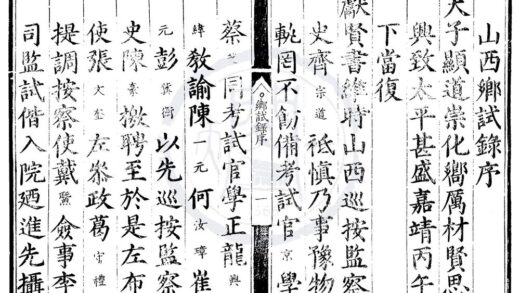 山西鄉試錄序
天子顯道崇化嚮厲材賢思
興致太平甚盛嘉靖丙午
下當復
獻賢書維時山西巡按監察
史齊宗道祗慎乃事豫物
罔不飭備考試官京學
鄉試錄序
一
蔡同考試官學正龍
緯教諭陳一元何汝璋崔
元彭以先巡按監察
史陳檄聘至於是左布
使張文左叅政葛守禮
提調按察使戴僉事李
司監試偕入院廼進先攝